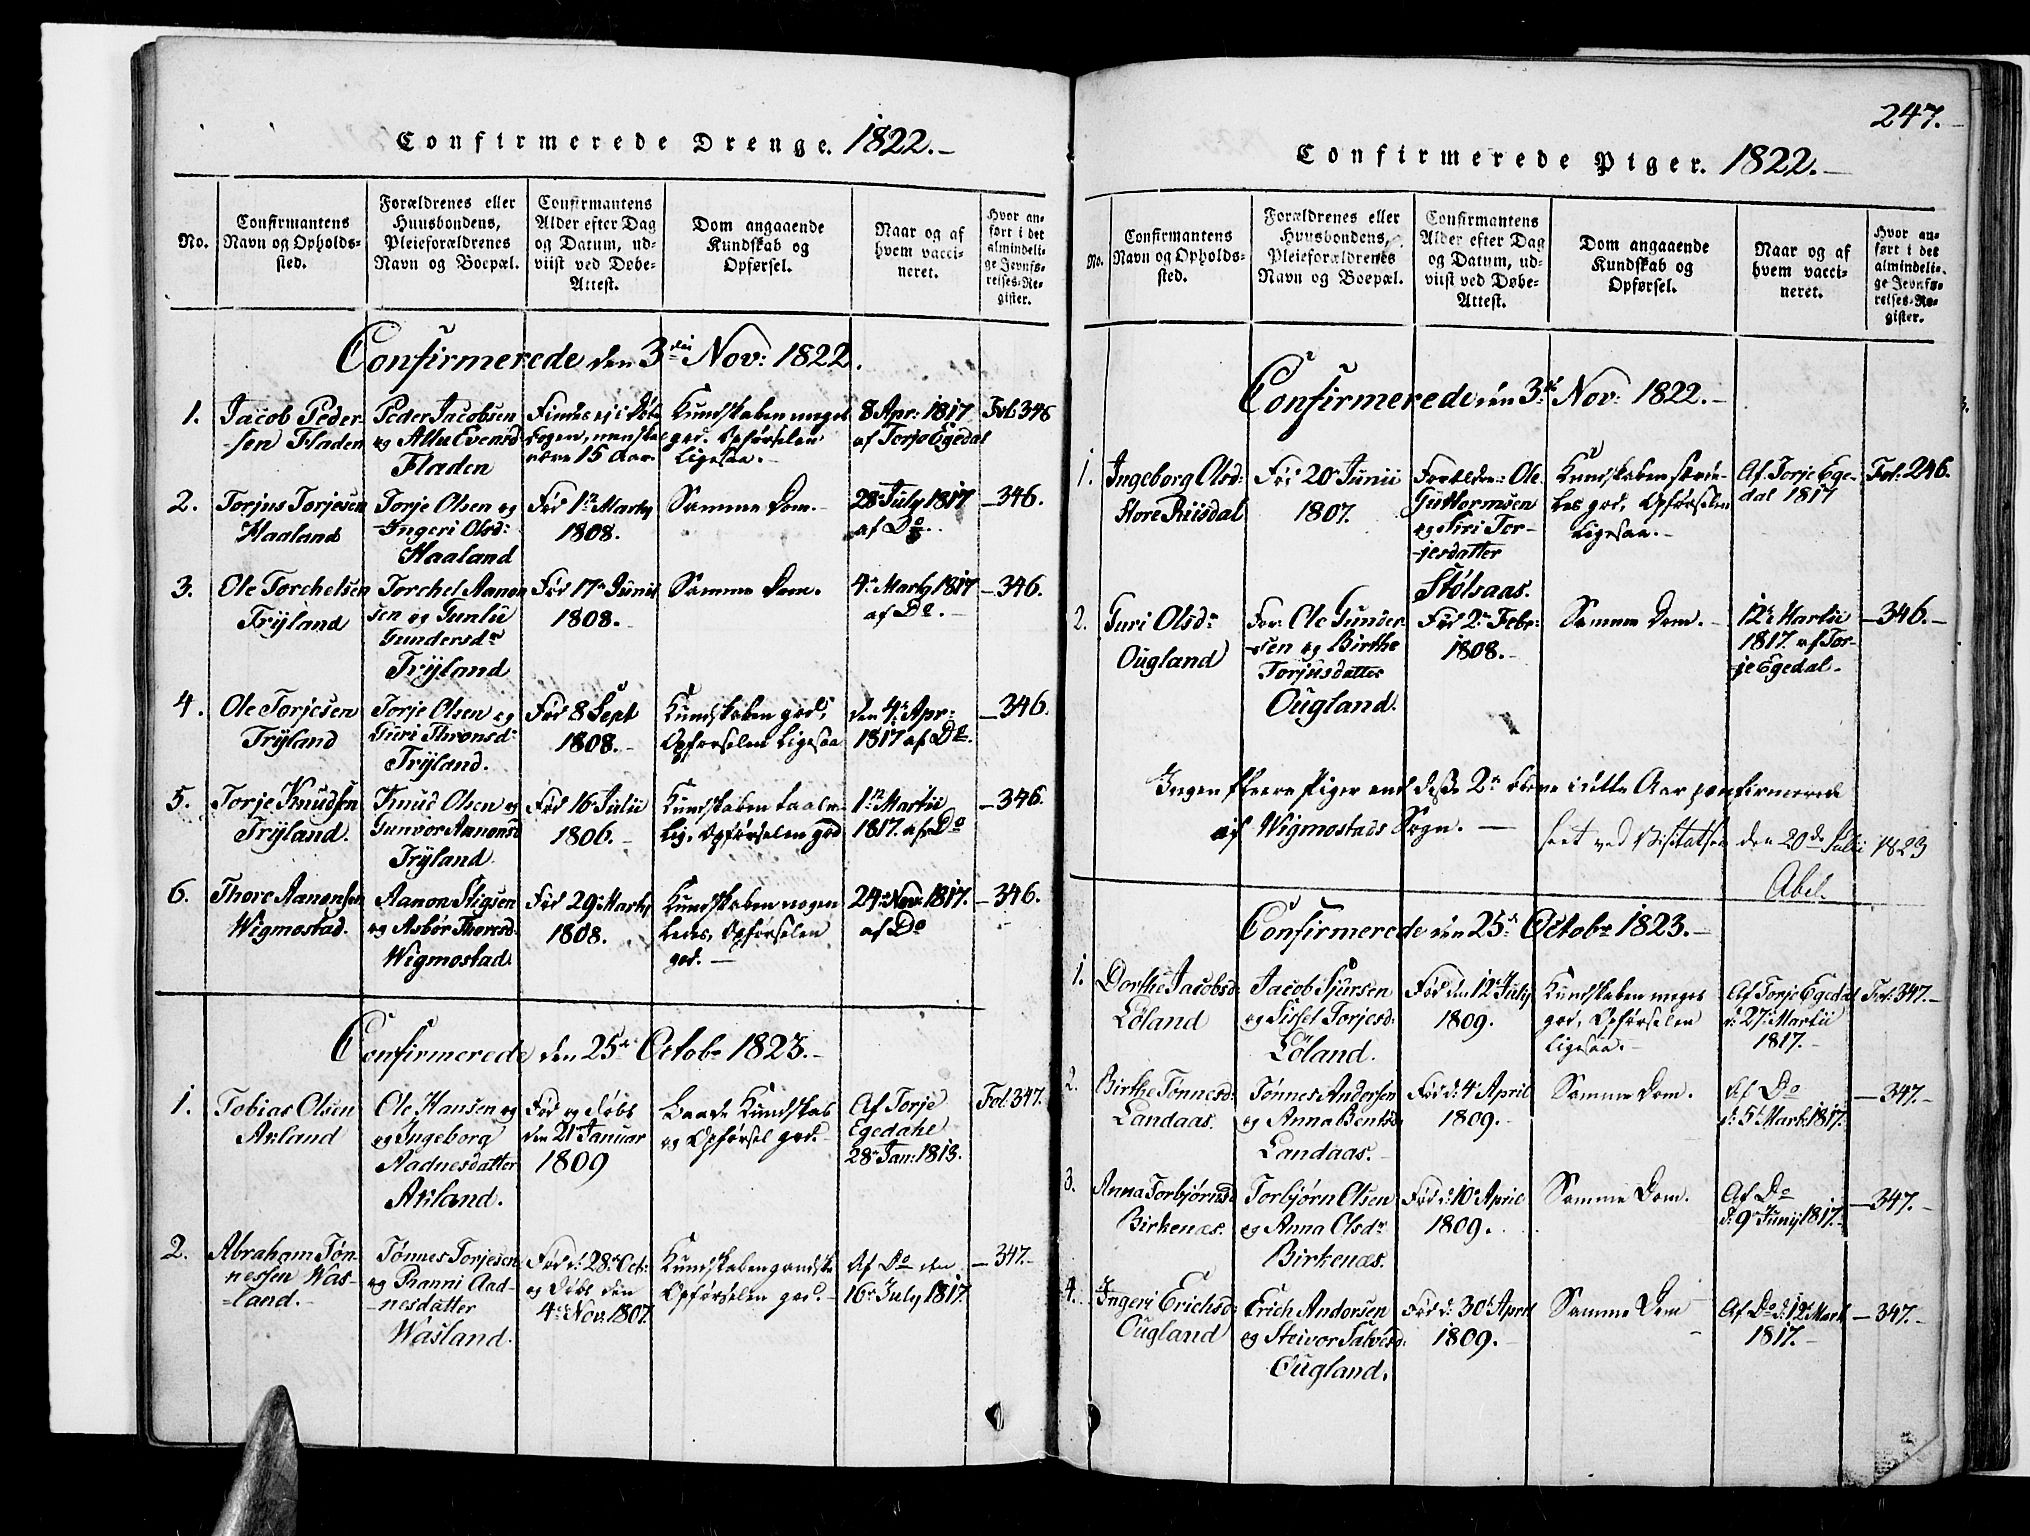 Confirmerede Drenge. 1822.
No.
Confirmantens
Navn og Opholds-
sted.
Forældrenes eller
Huusbondens,
Pleieforældrenes
Navn og Boepæl.
Confirmantens
Alder efter Dag
og Datum, ud-
viist ved Døbe-
Attest.
Dom angaaende
Kundskab og
Opførsel.
Naar og af
hvem vacci-
neret.
Hvor an-
ført i det
almindeli-
ge Jevnfø-
relses-Re-
gister.
Confirmerede den 3die Nov: 1822.
1.
Jacob Peder-
-sen Fladen
Peder Jacobsen
og Evensd
Fladen
Findes ej i
bogen, men skal
være 15 Aar.
Kundskaben meget
god. Opførselen
ligesaa.
8 Apr: 1817
af Torje Egedal
Fol. 346
2.
Torjus Torjesen
Haaland
Torje Olsen og
Ingeri Olsd:
Haaland
Fød 1te Martj
1808.
Samme Dom.
28 July 1817
af Do.
346.
3.
Ole Torchelsen
Trÿland
Torchel Aanon
sen og Gunlu
Gundersdr
Trÿland
Fød 17de Junii
1808.
Samme Dom.
4de Martj 1817
af Do.
346.
4.
Ole Torjesen
Trÿland
Torje Olsen og
Guri Thronsd:
Trÿland.
Fød 8 Sept
1808.
Kundskaben god,
Opførselen ligesaa
den 4de Apr:
1817 af Do.
346.
5.
Torje Knudsen
Trÿland.
Knud Olsen og
Gunvor Aanonsd
Trÿland.
Fød 16 Julii
1806.
Kundskaben taale-
lig, Opførselen god
1te Martii
1817. af Do
346.
6.
Thore Aanonsen
Wigmostad.
Aanon Stigsen
og Asbør Thoresd.
Wigmostad.
Fød 29de Martj
1808.
Kundskaben nogen
ledes, Opførselen
god.
24de Nov: 1817.
af Do
346.
Confirmerede den 25de Octobr 1823.
1.
Tobias Olsen
Ole Hansen og
og Ingeborg
Aadnesdatter
Fød og døbt
den 21 Januar
1809
Baade Kundskab
og Opførsel god.
Af Torje
Egedahl
28de Jan: 1813.
Fol. 347.
2.
Abraham Tøn-
nessen Was-
-land.
Tønnes Torjesen
og Ranni Aad-
-nesdatter
Wasland.
Fød d: 28de Oct:
og døbt den
4de Nov. 1807.
Kundskaben
Opførselen god.
Af Do den
16de July 1817.
347.
247.
Confirmerede Piger. 1822.
No.
Confirmantens
Navn og Opholds-
sted.
Forældrenes eller
Huusbondens,
Pleieforældrenes
Navn og Boepæl.
Confirmantens
Alder efter Dag
og Datum, ud-
viist ved Døbe-
Attest.
Dom angaaende
Kundskab og
Opførsel.
Naar og af
hvem vacci-
neret.
Hvor an-
ført i det
almindeli-
ge Jevnfø-
relses-Re-
gister.
Confirmerede den 3de Nov: 1822.
1.
Ingeborg Olsd:
Store Riisdal
Fød 20de Junii
1807.
Forældre: Ole
Guttormsen
og Siri Tor-
-jesdatter
Stølsaas.
Kundskaben
god, Opførselen
ligesaa.
Af Torje Ege-
dal 1817
Fol. 246.
2.
Guri Olsdr
Ougland
For: Ole Gunder
-sen og Birthe
Torjusdatter
Ougland.
Fød 2de Febr:
1808.
Samme Dom.
12te Martii
1817. af Tor-
je Egedal.
346.
Ingen fleere Piger end disse 2de bleve i dette Aar confirmerede
af Wigmostads Sogn.
seet ved Visitatsen den 20de Julii 1823
Abel.
Confirmerede den 25de Octobr 1823.
1.
Dorthe Jacobsd:
Løland
Jacob Sjursen
og Sissel Torjesd:
Løland.
Fød den 12te July
1809.
Kundskaben meget
god, Opførselen
ligesaa.
Af Torje Egedal
d: 27de Martii
1817.
Fol. 347.
2.
Birthe Tønnesd:
Landaas.
Tønnes Andersen
og Anna Bentsd:
Landaas.
Fød d: 4de April
1809.
Samme Dom.
Af Do
d: 5te Mart: 1817.
347.
3.
Anna Torbjørnsd
Birkenæs.
Torbjørn Olsen
og Anna Olsdr
Birkenæs.
Fød d: 10de April
1809.
Samme Dom.
Af Do
d: 9de Junij 1817.
347.
4.
Ingeri Erichsd:
Ougland
Erich Andersen
og Steivor Salvesd:
Ougland.
Fød d: 30de April
1809.
Samme Dom
Af Do d: 12te Mart
1817.
347.